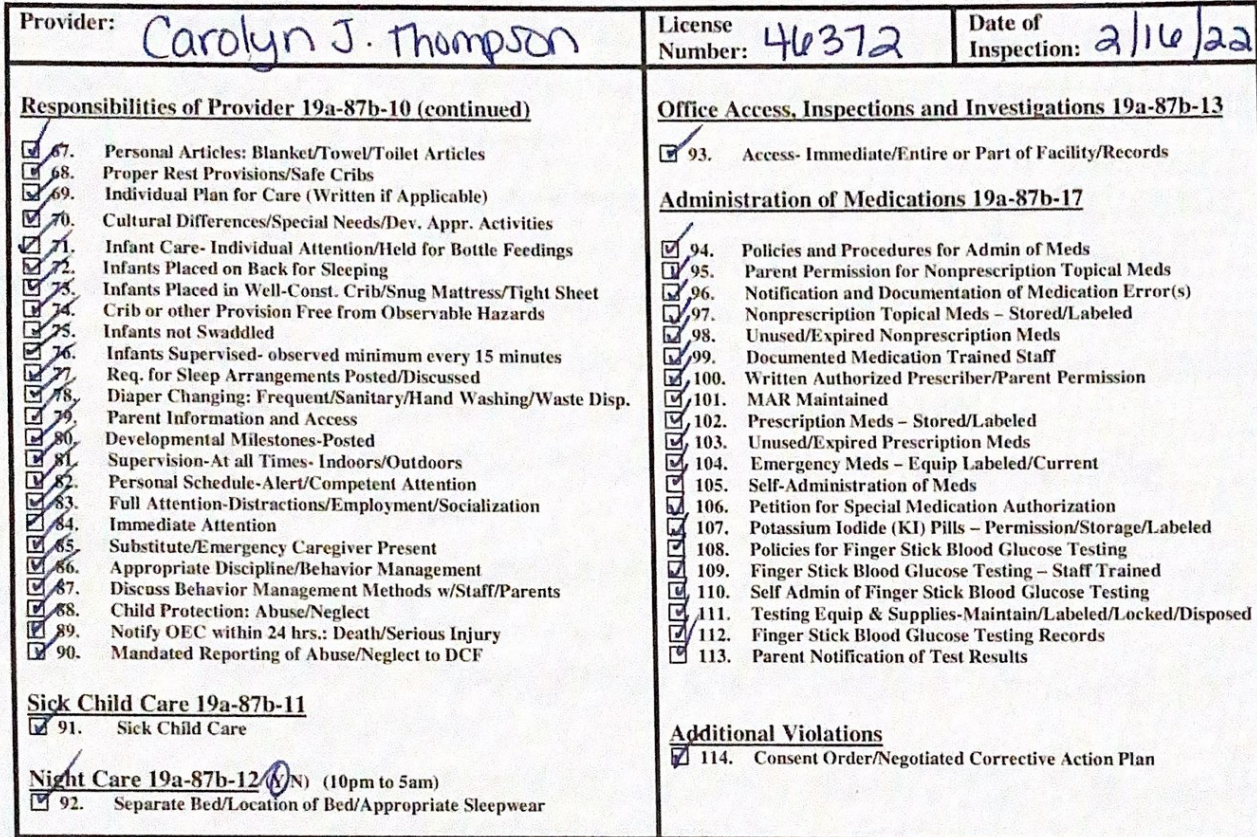 Provider: Carolyn J. Thompson
License Number: 46372
Date of Inspection: 2/16/22
Responsibilities of Provider 19a-87b-10 (continued)
67. Personal Articles: Blanket/Towel/Toilet Articles
68. Proper Rest Provisions/Safe Cribs
69. Individual Plan for Care (Written if Applicable)
70. Cultural Differences/Special Needs/Dev. Appr. Activities
71. Infant Care- Individual Attention/Held for Bottle Feedings
72. Infants Placed on Back for Sleeping
73. Infants Placed in Well-Const. Crib/Snug Mattress/Tight Sheet
74. Crib or other Provision Free from Observable Hazards
75. Infants not Swaddled
76. Infants Supervised- observed minimum every 15 minutes
77. Req. for Sleep Arrangements Posted/Discussed
78. Diaper Changing: Frequent/Sanitary/Hand Washing/Waste Disp.
79. Parent Information and Access
80. Developmental Milestones-Posted
81. Supervision-At all Times- Indoors/Outdoors
82. Personal Schedule-Alert/Competent Attention
83. Full Attention-Distractions/Employment/Socialization
84. Immediate Attention
85. Substitute/Emergency Caregiver Present
86. Appropriate Discipline/Behavior Management
87. Discuss Behavior Management Methods w/Staff/Parents
88. Child Protection: Abuse/Neglect
89. Notify OEC within 24 hrs.: Death/Serious Injury
90. Mandated Reporting of Abuse/Neglect to DCF
Sick Child Care 19a-87b-11
91. Sick Child Care
Night Care 19a-87b-12 (Y/N) (10pm to 5am)
92. Separate Bed/Location of Bed/Appropriate Sleepwear
Office Access, Inspections and Investigations 19a-87b-13
93. Access- Immediate/Entire or Part of Facility/Records
Administration of Medications 19a-87b-17
94. Policies and Procedures for Admin of Meds
95. Parent Permission for Nonprescription Topical Meds
96. Notification and Documentation of Medication Error(s)
97. Nonprescription Topical Meds – Stored/Labeled
98. Unused/Expired Nonprescription Meds
99. Documented Medication Trained Staff
100. Written Authorized Prescriber/Parent Permission
101. MAR Maintained
102. Prescription Meds – Stored/Labeled
103. Unused/Expired Prescription Meds
104. Emergency Meds – Equip Labeled/Current
105. Self-Administration of Meds
106. Petition for Special Medication Authorization
107. Potassium Iodide (KI) Pills – Permission/Storage/Labeled
108. Policies for Finger Stick Blood Glucose Testing
109. Finger Stick Blood Glucose Testing – Staff Trained
110. Self Admin of Finger Stick Blood Glucose Testing
111. Testing Equip & Supplies-Maintain/Labeled/Locked/Disposed
112. Finger Stick Blood Glucose Testing Records
113. Parent Notification of Test Results
Additional Violations
114. Consent Order/Negotiated Corrective Action Plan